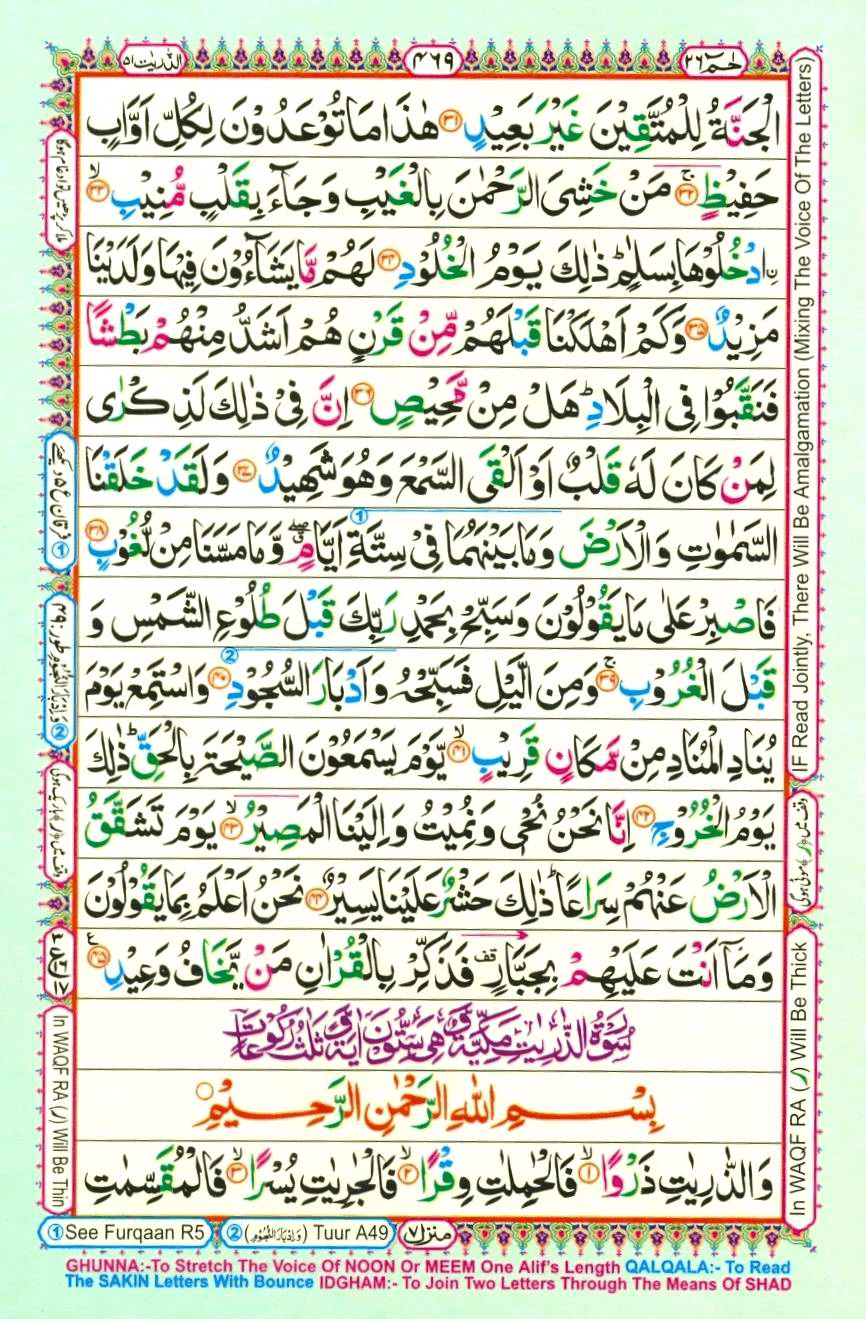 حٰمٓ ٢٦
٤٦٩
الذّٰریٰت ٥١
الْجَنَّةُ لِلْمُتَّقِیْنَ غَیْرَ بَعِیْدٍ ﴿۳۱﴾ هٰذَا مَا تُوْعَدُوْنَ لِكُلِّ اَوَّابٍ
حَفِیْظٍ ﴿۳۲﴾ۚ مَنْ خَشِیَ الرَّحْمٰنَ بِالْغَیْبِ وَجَآءَ بِقَلْبٍ مُّنِیْبِ ﴿۳۳﴾ۙ
ِ۟ادْخُلُوْهَا بِسَلٰمٍ ؕ ذٰلِكَ یَوْمُ الْخُلُوْدِ ﴿۳۴﴾ لَهُمْ مَّا یَشَآءُوْنَ فِیْهَا وَلَدَیْنَا
مَزِیْدٌ ﴿۳۵﴾ وَكَمْ اَهْلَكْنَا قَبْلَهُمْ مِّنْ قَرْنٍ هُمْ اَشَدُّ مِنْهُمْ بَطْشًا
فَنَقَّبُوْا فِی الْبِلَادِ ؕ هَلْ مِنْ مَّحِیْصٍ ﴿۳۶﴾ اِنَّ فِیْ ذٰلِكَ لَذِكْرٰی
لِمَنْ كَانَ لَهٗ قَلْبٌ اَوْ اَلْقَی السَّمْعَ وَهُوَ شَهِیْدٌ ﴿۳۷﴾ وَلَقَدْ خَلَقْنَا
السَّمٰوٰتِ وَالْاَرْضَ وَمَا بَیْنَهُمَا فِیْ سِتَّةِ اَیَّامٍ ۖۗ وَّمَا مَسَّنَا مِنْ لُّغُوْبٍ ﴿۳۸﴾
فَاصْبِرْ عَلٰی مَا یَقُوْلُوْنَ وَسَبِّحْ بِحَمْدِ رَبِّكَ قَبْلَ طُلُوْعِ الشَّمْسِ وَ
قَبْلَ الْغُرُوْبِ ﴿۳۹﴾ۚ وَمِنَ الَّیْلِ فَسَبِّحْهُ وَاَدْبَارَ السُّجُوْدِ ﴿۴۰﴾ وَاسْتَمِعْ یَوْمَ
یُنَادِ الْمُنَادِ مِنْ مَّكَانٍ قَرِیْبٍ ﴿۴۱﴾ۙ یَّوْمَ یَسْمَعُوْنَ الصَّیْحَةَ بِالْحَقِّ ؕ ذٰلِكَ
یَوْمُ الْخُرُوْجِ ﴿۴۲﴾ اِنَّا نَحْنُ نُحْیٖ وَنُمِیْتُ وَاِلَیْنَا الْمَصِیْرُ ﴿۴۳﴾ۙ یَوْمَ تَشَقَّقُ
الْاَرْضُ عَنْهُمْ سِرَاعًا ؕ ذٰلِكَ حَشْرٌ عَلَیْنَا یَسِیْرٌ ﴿۴۴﴾ نَحْنُ اَعْلَمُ بِمَا یَقُوْلُوْنَ
وَمَاۤ اَنْتَ عَلَیْهِمْ بِجَبَّارٍ قف فَذَكِّرْ بِالْقُرْاٰنِ مَنْ یَّخَافُ وَعِیْدِ ﴿۴۵﴾
سُوْرَةُ الذّٰرِیٰتِ مَكِّیَّةٌ وَّهِیَ سِتُّوْنَ اٰیَةً وَّثَلٰثُ رُكُوْعَاتٍ
بِسْمِ اللّٰهِ الرَّحْمٰنِ الرَّحِیْمِ
وَالذّٰرِیٰتِ ذَرْوًا ﴿۱﴾ۙ فَالْحٰمِلٰتِ وِقْرًا ﴿۲﴾ۙ فَالْجٰرِیٰتِ یُسْرًا ﴿۳﴾ۙ فَالْمُقَسِّمٰتِ
IF Read Jointly, There Will Be Amalgamation (Mixing The Voice Of The Letters)
وقف میں ﴿ر﴾ موٹی ہوگی
In WAQF RA (ر) Will Be Thick
ملا کر پڑھیں تو ادغام ہوگا
① فرقان ع ٥ دیکھئے
② وَاِدْبَارَ النُّجُوْمِ طور ٤٩
وقف میں ﴿ر﴾ باریک ہوگی
In WAQF RA (ر) Will Be Thin
① See Furqaan R5
② (وَاِدْبَارَ النُّجُوْمِ) Tuur A49
منزل ٧
GHUNNA:-To Stretch The Voice Of NOON Or MEEM One Alif's Length QALQALA:- To Read
The SAKIN Letters With Bounce IDGHAM:- To Join Two Letters Through The Means Of SHAD